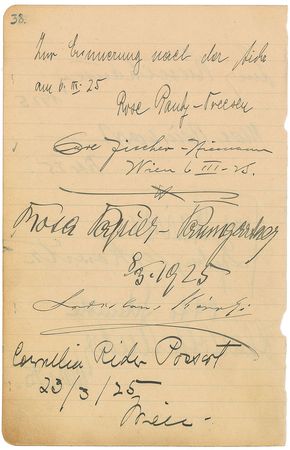 38.
Zur Erinnerung nach der
am 6. III. 25
Rose
Fischer-Niemann
Wien 6 III - 25.
Rosa Papier-Paumgartner
8/3. 1925
Cornelia Rider Possart
23/3/25
Wien -